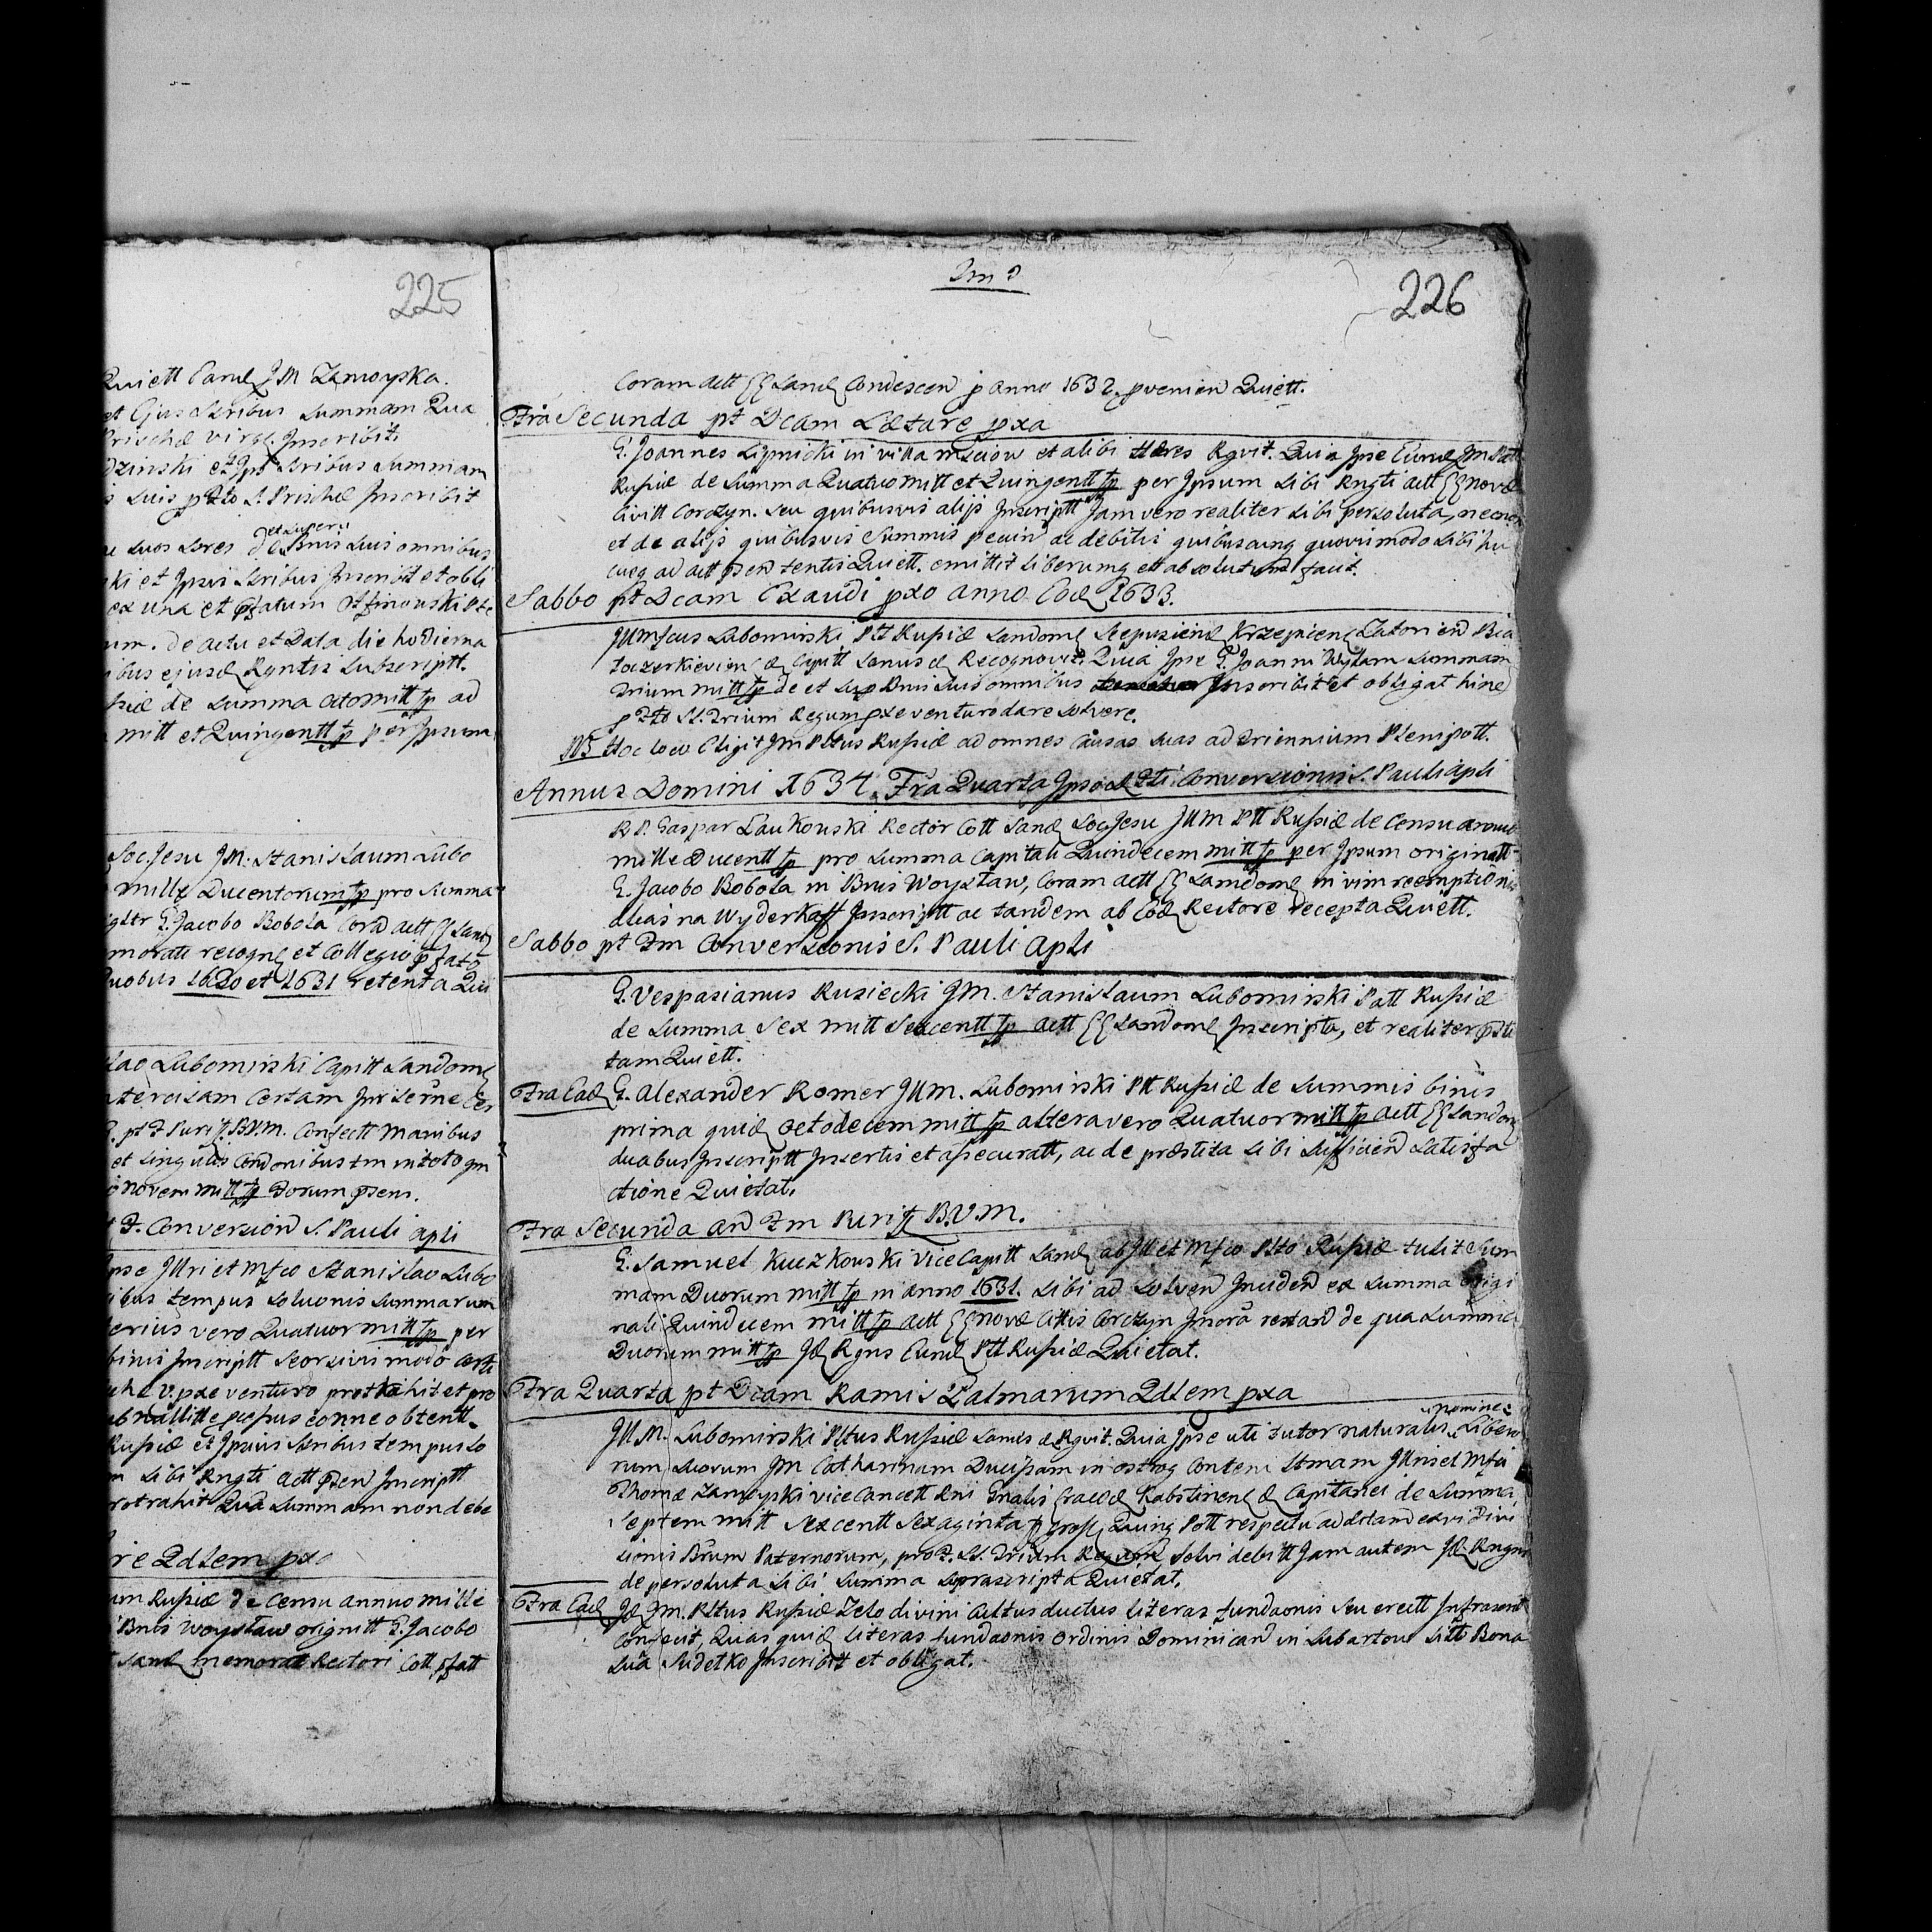 225
Quiett Eand JM Zamoyska.
et Ejus Sribus Summam Qua
Prischæ virg. Inscribit
dzinski et Ipō Sribus Summam
s Suis p Fto S. Prischæ Inscribit
et super
suos Sres de Bnis Suis omnibus
ki et Ipsis Sribus Inscribit et obli
ex una et pfatum
um. De actu et Data die hodierna
ibus ejusd Rgntis Subscriptt.
siæ de Summa octo mitt fp ad
mitt et Quingentt fp per Ipsum
Soc Jesu JM. Stanislaum Lubo
mille Ducentorum fp pro Summa
G. Jacobo Bobola Corā actt Sand
morati recogn et Collegio pfato
uobus 1630 et 1631 retenta Qui
lao Lubomirski Capitt Sandom
certam
pt F Purif. B.V.M. Confectt Manibus
et Singulis Condonibus tm in toto
novem mitt fp Forum psens.
F. Conversion S. Pauli apli
pse Illri et Mfco Stanislao Lubo
ibus tempus Soluonis Summarum
erius vero Quatuor mitt fp per
binis Inscriptt Seorsivis modo
V. pxe venturo prothahit et pro
obtentt.
Russiæ et Ipsius Sribus tempus So
Sibi Rngti actt psen Inscriptt
rotrahit Qua Summam non debe
re Qdlem pxa
um Russiæ de Censu annuo mille
Bnis Woyslaw originitt G. Jacobo
Sand memorat Rectori Coll pfatt
Im?
226
Coram actt Sand Condescen p anno 1632. pvenien Quiett.
Fria Secunda pt Dcam Lætare pxa
G. Joannes Lipnicki in villa Mściow et alibi Hæres Rgvit. Quia Ipse Eund JM Patt
Russiæ de Summa Quatuo mitt et Quingentt fp per Ipsum Sibi Rngti actt novæ
Civitt Corczyn. Seu quibusvis alijs Inscriptt Jam vero realiter Sibi persoluta, necnon
et de alijs quibusvis Summis pecun ac debitis quibuscunq quovis modo Sibi hu
cusq ad actt psen tentis Quiett. emittit liberumq et absolutum facit.
Sabbo pt Dcam Exaudi pxo anno Eod 1633.
JllMfcus Lubomirski Pltt Russiæ Sandom Scepusiens Krzepicens Zatorien Bia
locerkievien & Capitt Sanus & Recognovit. Quia Ipse G. Joanni Wylam Summam
Trium mitt fp de et Sup Bnis Suis omnibus Inscribit et obligat hinc
p Fto SS. Trium Regum pxe venturo dare Solvere.
NB Hoc loco Eligit JM Pltus Russiæ ad omnes Causas Suas ad triennium Plenipott.
Annus Domini 1634. Fria Quarta Ipso d Fti Conversionis S. Pauli apli
R.P. Gaspar Laukouski Rector Coll Sand Soc Jesu JllM Pltt Russiæ de Censu annuo
mille Ducentt fp pro Summa Capitali Quindecem mitt fp per Ipsum originatt
G. Jacobo Bobola in Bnis Woyslaw, Coram actt Sandom in vim reemptionis
alias na Wyderkaff Inscriptt ac tandem ab Eod Rectore recepta Quiett.
Sabbo pt Fm Conversionis S. Pauli apli
G. Vespasianus Rusiecki JM. Stanislaum Lubomirski Patt Russiæ
de Summa Sex mitt Sexcentt fp actt Sandom Inscripta, et realiter psti
tam Quiett.
Fria Ead G. Alexander Romer JllM. Lubomirski Pltt Russiæ de Summis binis
prima quid octodecem mitt fp altera vero Quatuor mitt fp actt Sandom
duabus Inscriptt Insertis et assecuratt, ac de præstita Sibi Sufficien Satisfa
ctione Quietat.
Fria Secunda an Fm Purif B.V.M.
G. Samuel Kuczkouski Vice Capitt Sand ab Jll et Mfco Plto Russiæ tulit Sum
mam Duorum mitt fp in anno 1631. Sibi ad Solven Inciden ex Summa origi
nali Quindecem mitt fp actt novæ Cittis Corczyn Inora restan de qua Summa
Duorum mitt fp Jd Rgns Eund Pltt Russiæ Quietat.
Fria Quarta pt Dcam Ramis Palmarum Qdlem pxa
nomine
JllM. Lubomirski Pltus Russiæ Comes & Rgvit. Quia Ipse uti tutor naturalis Libero
rum Suorum JM Catharinam Ducissam in Ostrog Contem Stmam Jllris et Mfci
Thomæ Zamoyski Vice Cancell Rni Gnalis Cracov Kabstinens & Capitanei de Summa
Septem mitt Sexcentt Sexaginta fl gross Quinq Poll respectu addtamen ex vi Divi
sionis Brum Paternorum, pro F. SS. Trium Regum Solvi debitt Jam autem Jd Rngns
de persoluta Sibi Summa Suprascripta Quietat.
Fria Ead Jd JM. Pltus Russiæ Zelo divini Cultus ductus literas fundaonis Seu erectt Infrascrit
Confecit, Quas quid literas fundaonis ordinis Dominican in Lubartow Sitt Bona
Sua Rudelko Inscribit et obligat.